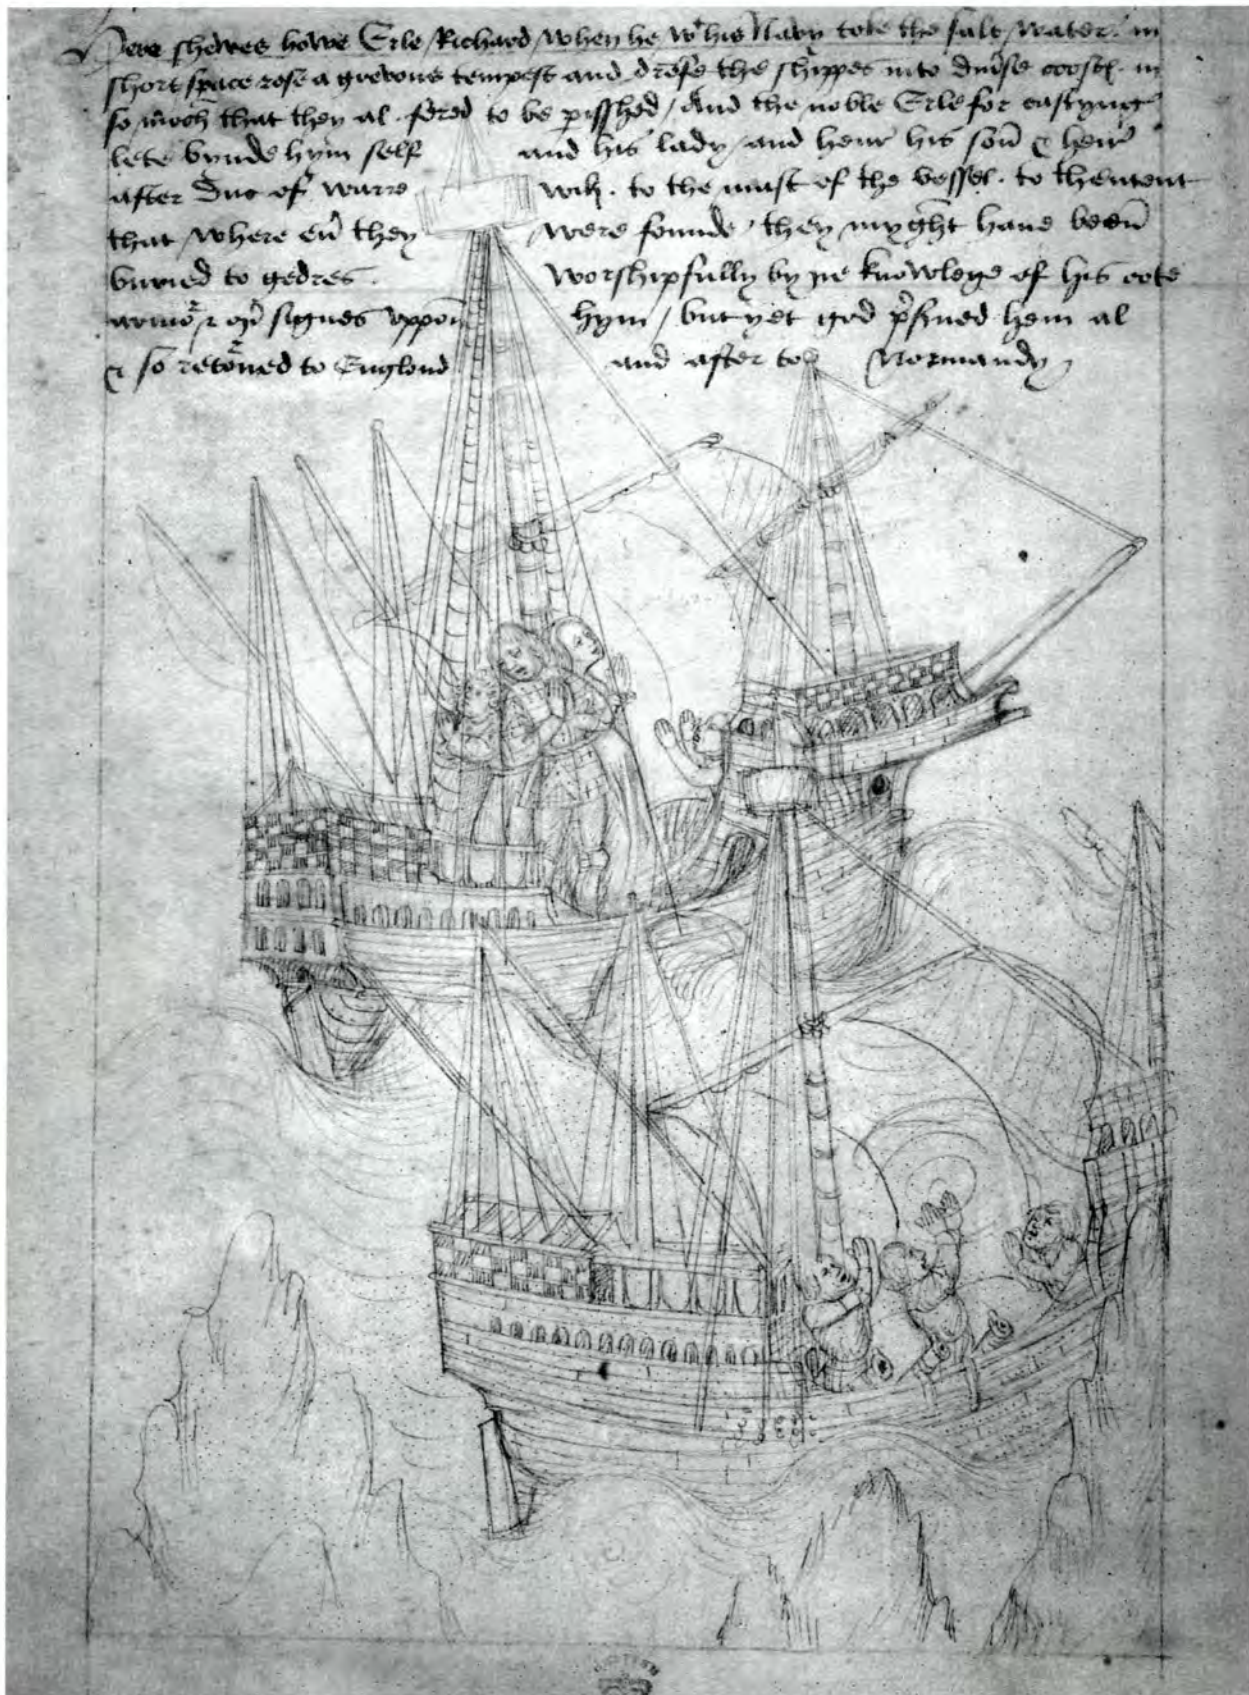 Here shewes howe Erle Richard when he wt his Navy toke the salt water. in
short space rose a grevous tempest and drofe the shippes into div̄se coostꝭ. in
so moch that they al fered to be pisshed / And the noble Erle for castyng
lete bynde hym self and his lady / and henr̄ his son̄ & heir̄
after Duc of warre wik. to the mast of the vessel. to thentent
that where eū they were founde / they myght haue been̄
buried to gedres. worshipfully by þe knowlege of his cote
armoʳ & oþ signes vppon̄ hym / but yet god p̄sued hem al
& so retoʳned to Englond and after to Normandy
BRITISH